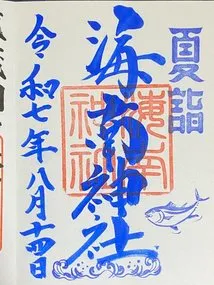 夏詣
海南神社
海南
神社
令和七年八月十四日